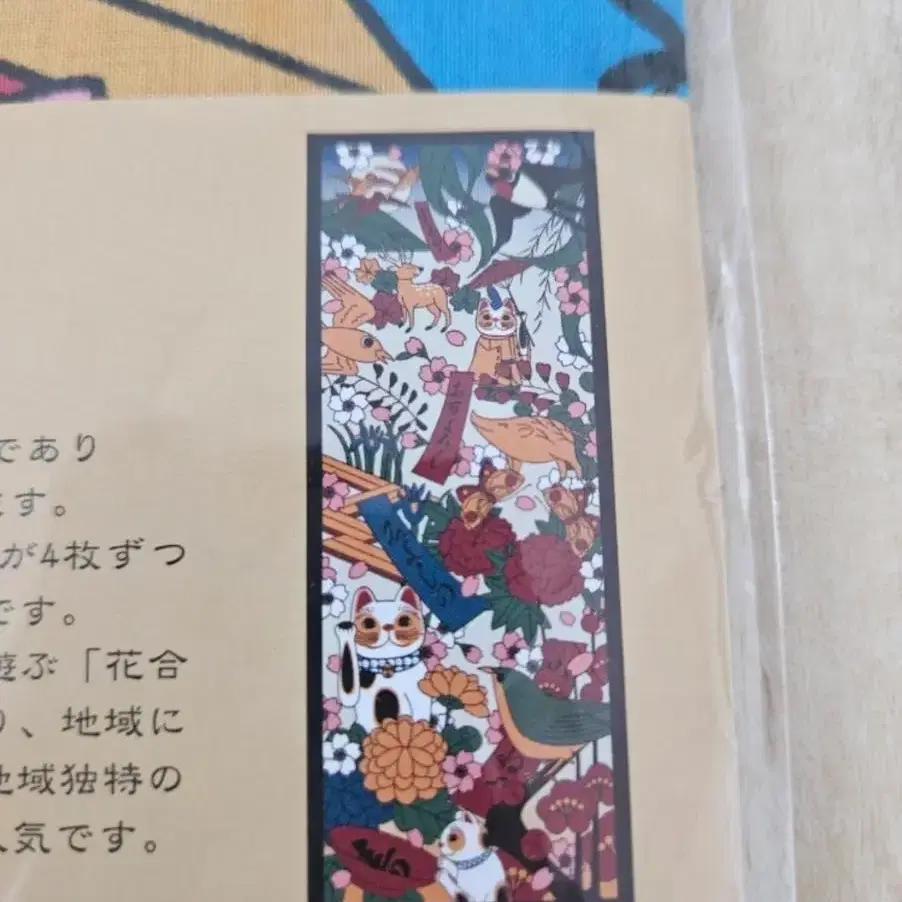 であり
ます。
が4枚ずつ
です。
遊ぶ「花合
り、地域に
地域独特の
人気です。